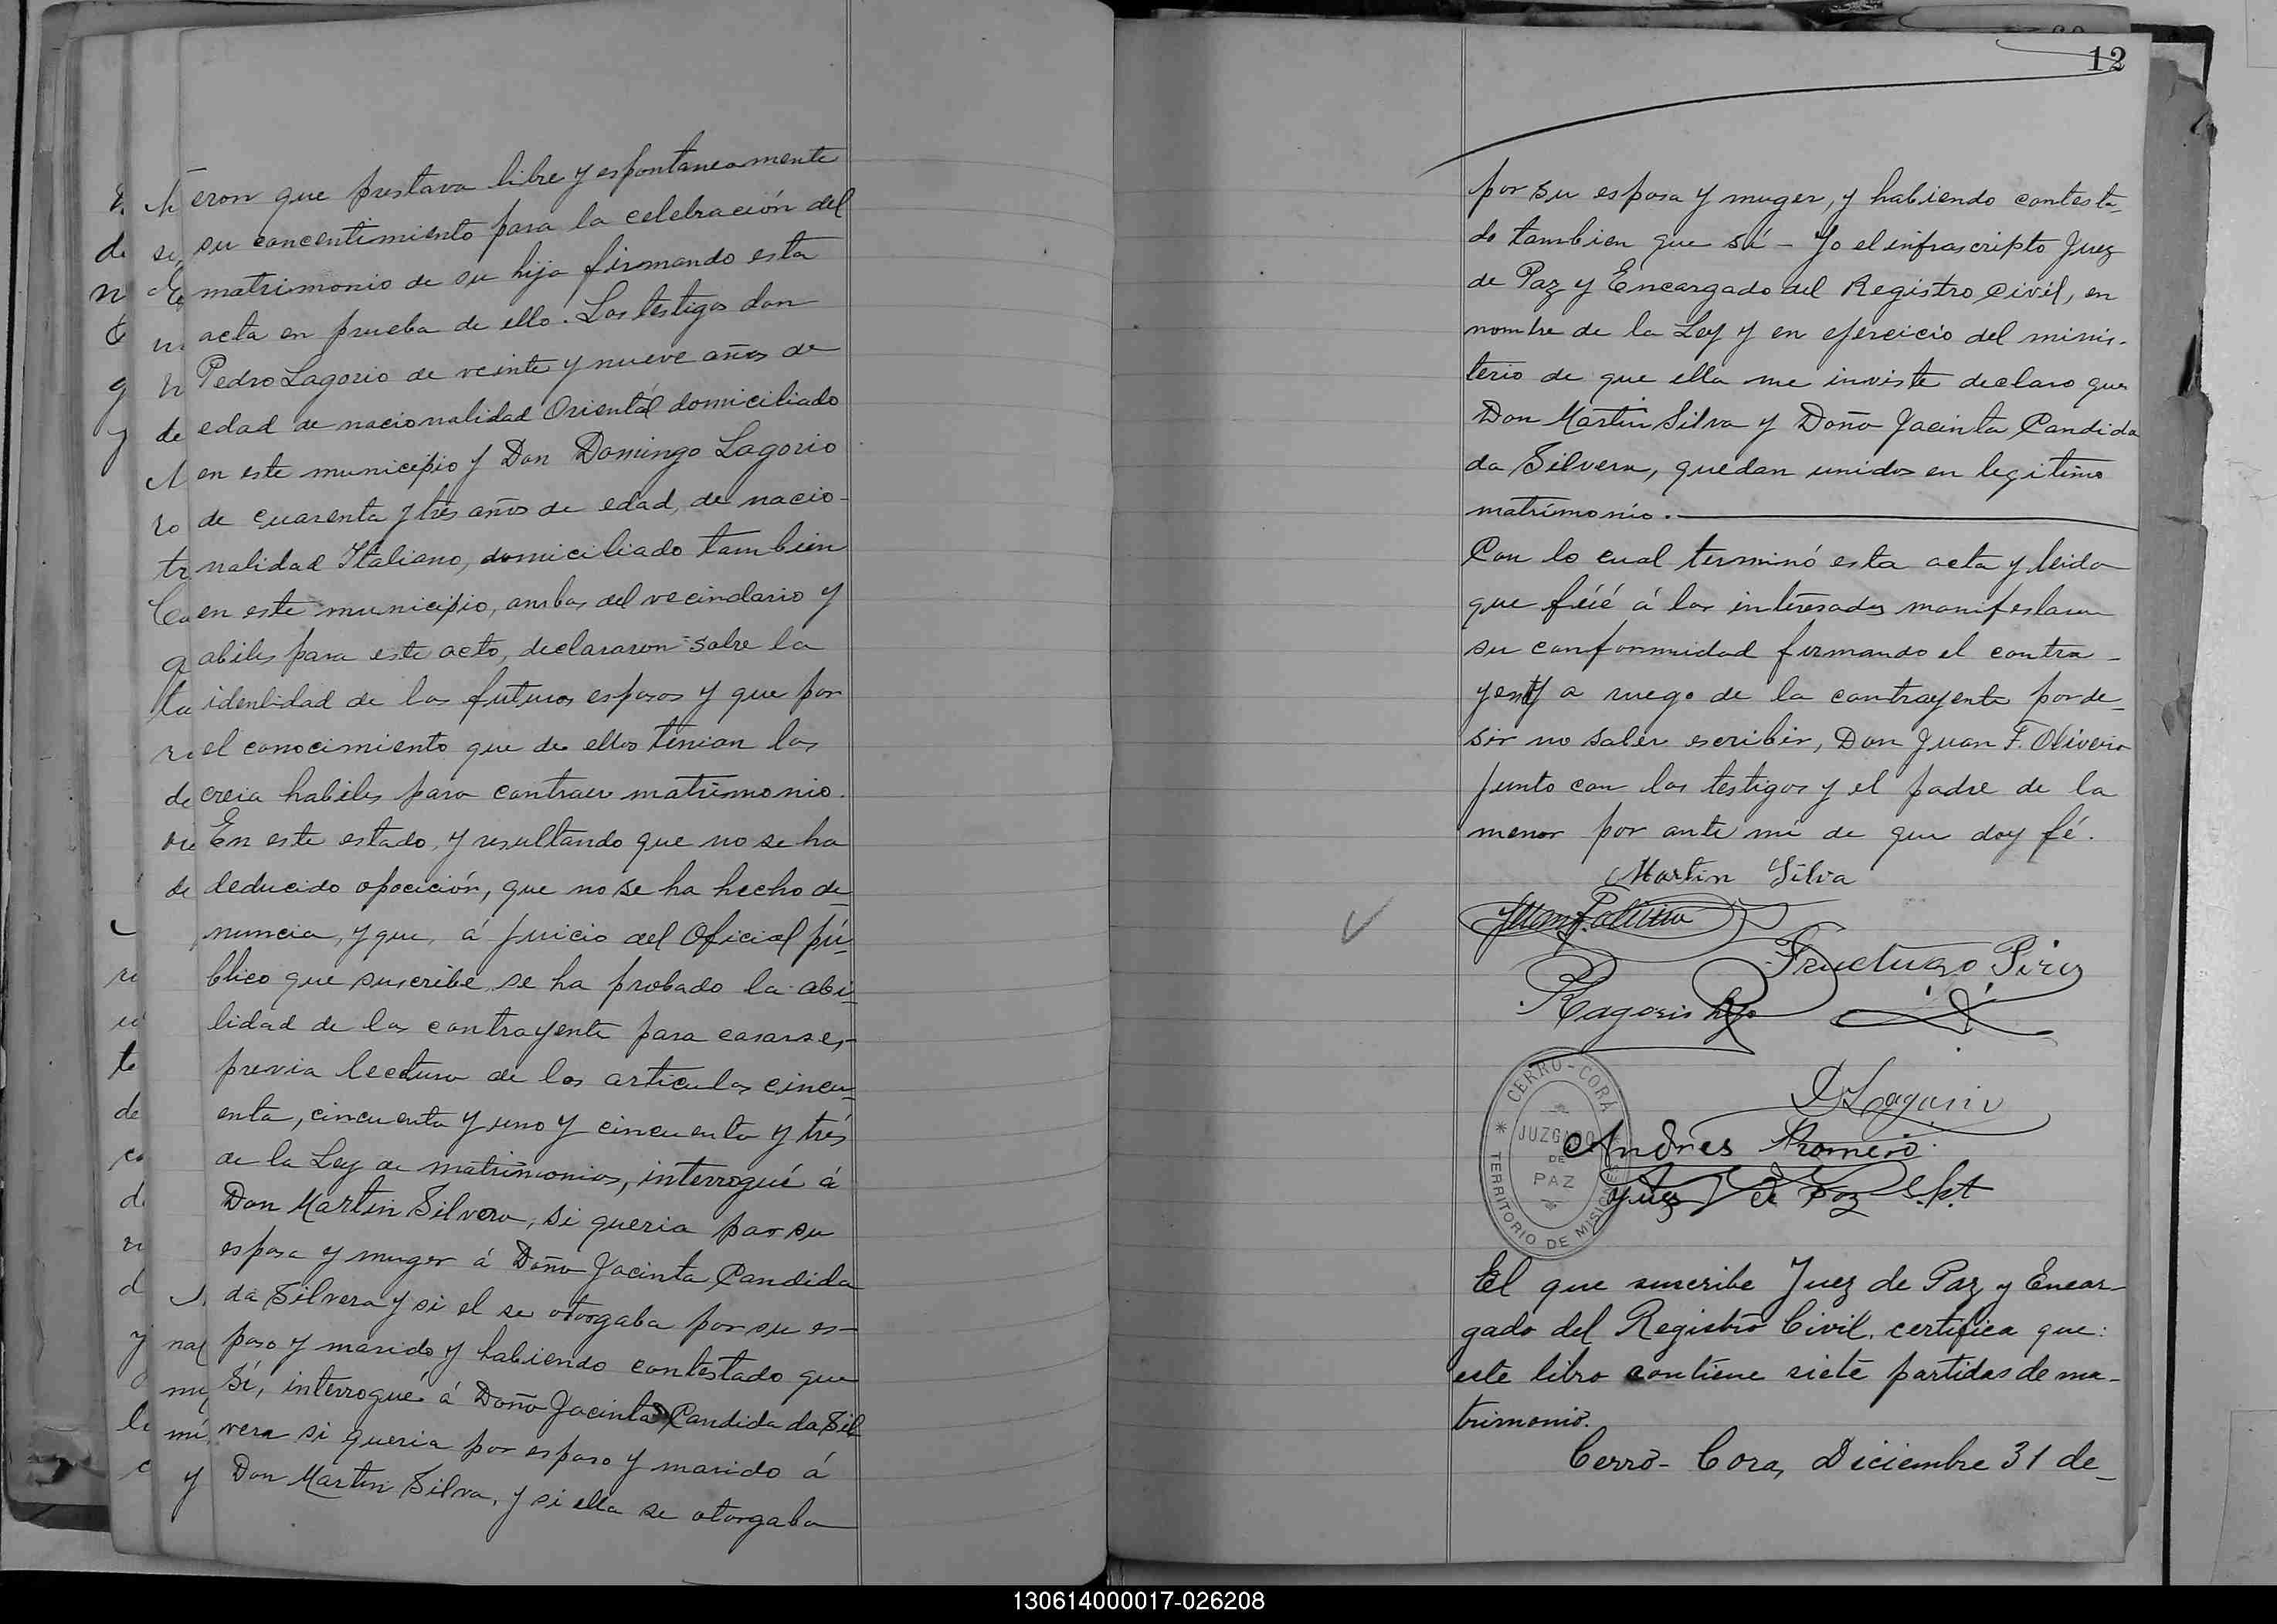 eron que prestava libre y espontaneamente
su concentimiento para la celebración del
matrimonio de su hija firmando esta
acta en prueba de ello. Los testigos don
Pedro Lagorio de veinte y nueve años de
edad de nacionalidad Oriental domiciliado
en este municipio y Don Domingo Lagorio
de cuarenta y tres años de edad, de nacio-
nalidad Italiano, domiciliado tambien
en este municipio, ambos del vecindario y
abiles para este acto, declararon sobre la
identidad de los futuros esposos y que por
el conocimiento que de ellos tenian los
creia habiles para contraer matrimonio.
En este estado, y resultando que no se ha
deducido opocición, que no se ha hecho de-
nuncia, y que, á juicio del Oficial pú-
blico que suscribe, se ha probado la abi-
lidad de los contrayente para casarse,-
previa lectura de los articulos cincu-
enta, cincuenta y uno y cincuenta y trés
de la Ley de matrimonios, interrogué á
Don Martin Silvera, si queria por su
esposa y muger á Doña Jacinta Candida
da Silvera y si el se otorgaba por su es-
poso y marido y habiendo contestado que
Sí, interrogué á Doña Jacinta Candida da Sil
vera si queria por esposo y marido á
Don Martin Silva, y si ella se otorgaba
12
por su esposa y muger, y habiendo contesta-
do tambien que sí - Yo el infrascripto Juez
de Paz y Encargado del Registro Civil, en
nombre de la Ley y en ejercicio del minis-
terio de que ella me inviste declaro que
Don Martin Silva y Doña Jacinta Candida
da Silvera, quedan unidos en legitimo
matrimonio.
Con lo cual terminó esta acta y leida
que fué á los interesados manifestaron
su conformidad firmando el contra-
yente y a ruego de la contrayente por de-
sir no saber escribir, Don Juan F. Oliveira
junto con los testigos y el padre de la
menor por ante mi de que doy fé.
Martin Silva
Fructuoso Pires
Lagorio hijo
D Lagorio
CERRO-CORÁ
JUZGADO
DE
PAZ
TERRITORIO DE MISIONES
Andres Romero
Juez de Paz Spt.
El que suscribe Juez de Paz y Encar-
gado del Registro Civil, certifica que:
este libro contiene siete partidas de ma-
trimonio.
Cerro-Cora, Diciembre 31 de-
130614000017-026208